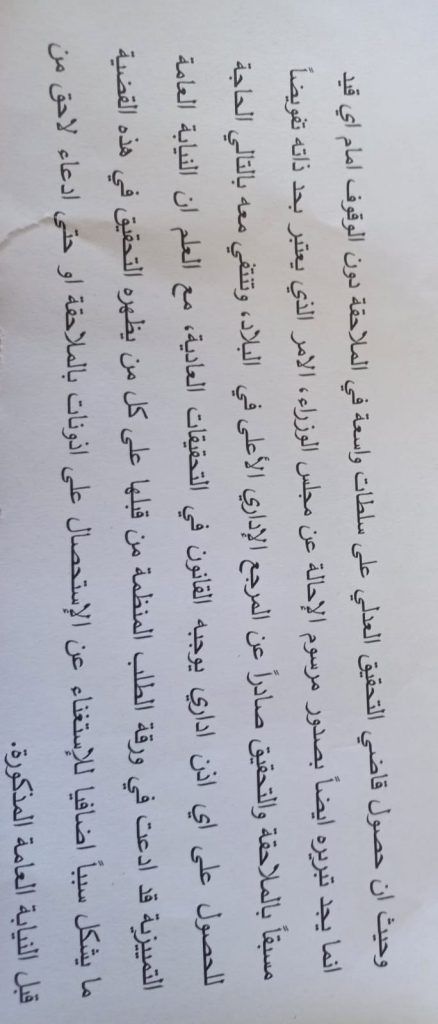 وحيث ان حصول قاضي التحقيق العدلي على سلطات واسعة في الملاحقة دون الوقوف امام اي قيد
انما يجد تبريره ايضاً بصدور مرسوم الإحالة عن مجلس الوزراء، الامر الذي يعتبر بحد ذاته تفويضاً
مسبقاً بالملاحقة والتحقيق صادراً عن المرجع الإداري الأعلى في البلاد، وتنتفي معه بالتالي الحاجة
للحصول على اي اذن اداري يوجبه القانون في التحقيقات العادية، مع العلم ان النيابة العامة
التمييزية قد ادعت في ورقة الطلب المنظمة من قبلها على كل من يظهره التحقيق في هذه القضية
ما يشكل سبباً اضافيا للإستغناء عن الإستحصال على اذونات بالملاحقة او حتى ادعاء لاحق من
قبل النيابة العامة المذكورة.